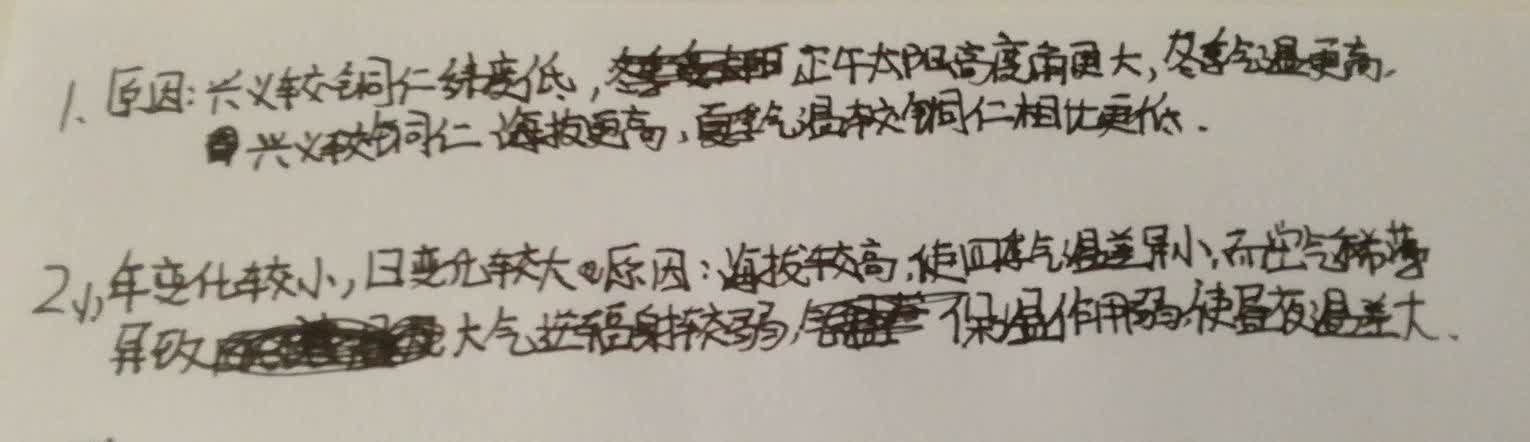 1. 原因:兴义较铜仁纬度低,正午太阳高度角更大,冬季气温更高.
兴义较铜仁海拔更高,夏季气温较铜仁相比更低.
2、年变化较小,日变化较大。原因:海拔较高,使四季气温差异小,而空气稀薄
导致大气逆辐射较弱,保温作用弱,使昼夜温差大.